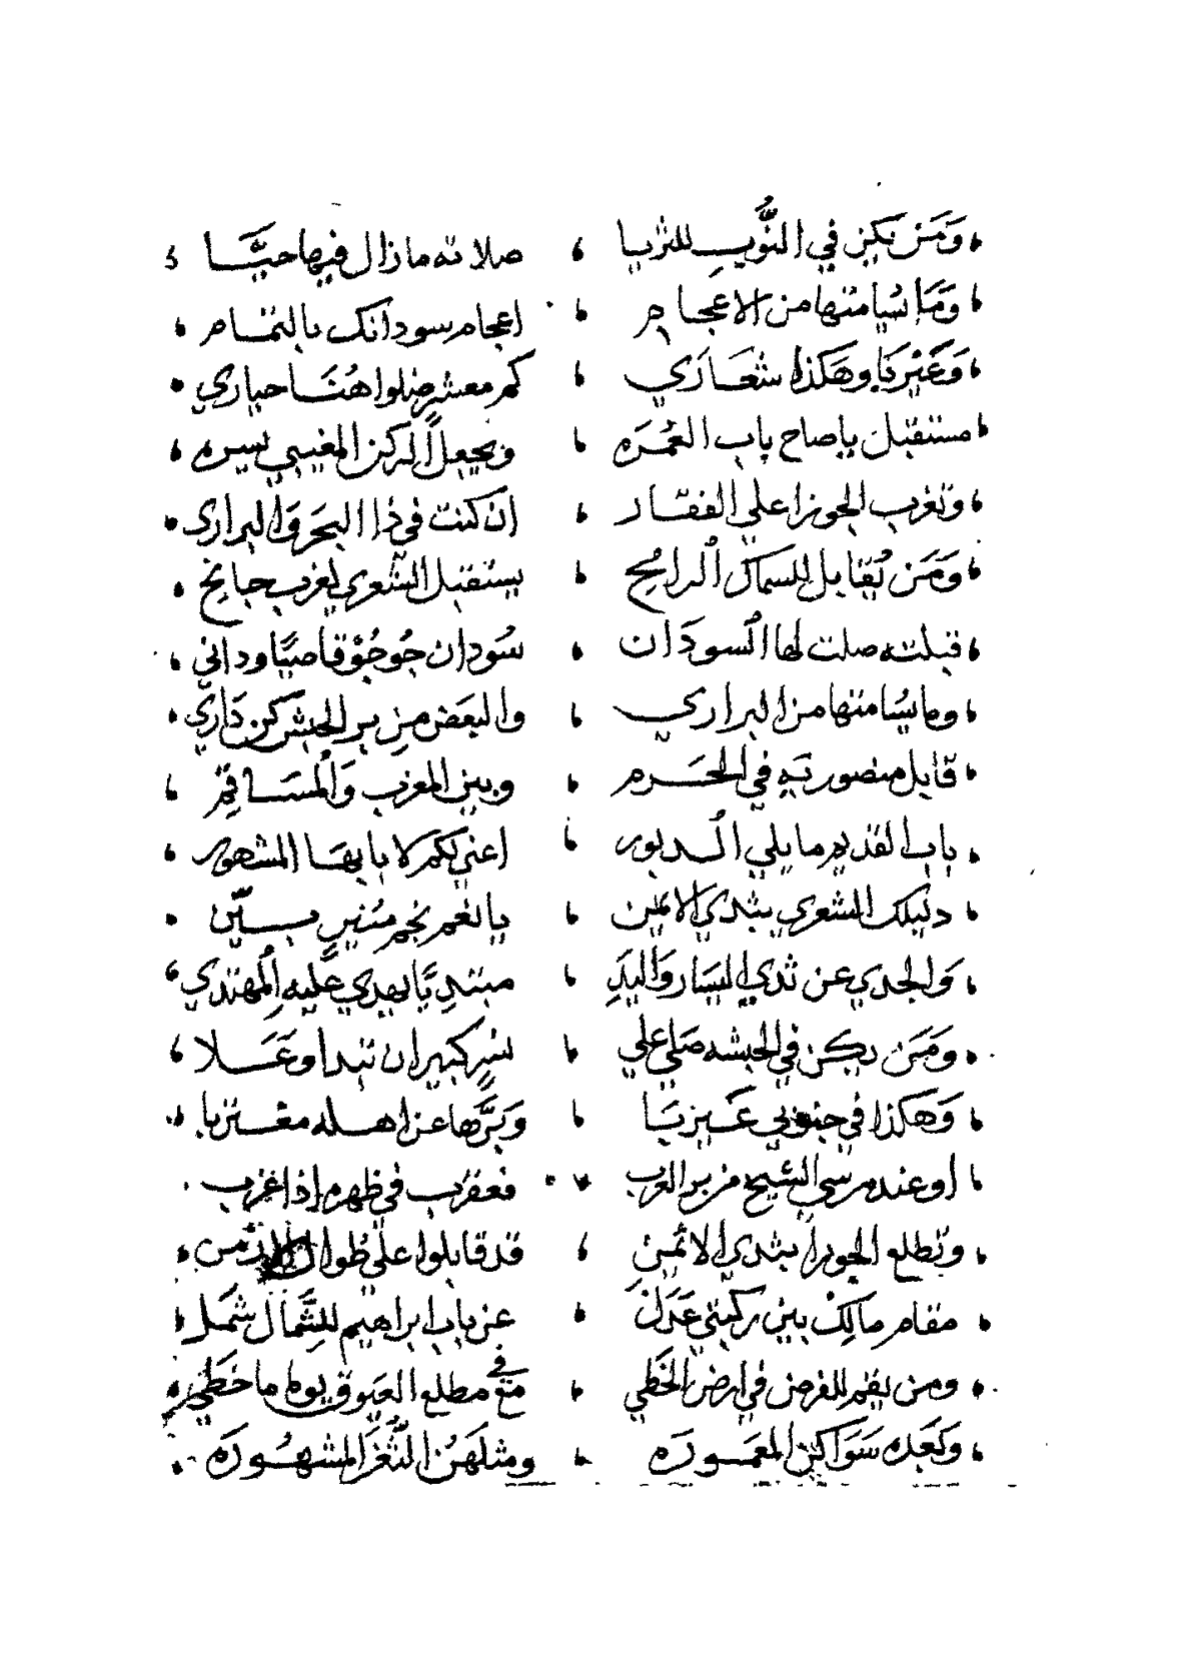 وَمَن يكن في النُّوبِ للثريا صلاته ما زال فيها حيَّا
وَمَا يُسَامتها من الاعجام اعجام سودانك بالتمام
هكذا شعاري كم معشر ضلوا هُنَا حياري
مستقبل ياصاح باب العُمْرَه ويجعل الركن المغيبي يسره
وتغرب الجوزا على الفقار ان كنت في ذا البحر وَالبراري
وَمَن تُقابل للسماك الرامح يستقبل الشعري لغرب جانح
قبلته صلت لها السودَان سُودان جُوجُوْ قاصيًا وداني
وما يُسَامتها من البراري والبعض من بر الحبش كن دَاري
قابل منصوريَّه في الحرم وبين المغرب وَالمسَاقم
باب القديم ما يلي الدبور اعني لكم لا بابها المشهور
دليلك الشعري بثدي الايمن يا لغم نجم مُنير بيّن
وَالجدي عن ثدي اليسَار وَاليَدِ مبتدِيًا يهدي عليه المهتدي
ومَن يكن في الحبشه صَلي علي نسرٍ كبير ان تبدا وعَلا
وَهكذا في جنوبي وَبَرَّها عن اهله مغتربا
او عند مرسي الشيخ من بر العرب فعقرب في ظهره إذا غرب
وتطلع الجوزا بثدي الايمن قد قابلوا علي طوال الزمن
مقام مالِكْ بين ركبتي عَدَلْ عن باب ابراهيم للشَّمال شمل
ومن يقم للفرض في ارض الخَطي مَع مطلع العيوق يوما ما خَطي
وَبَعده سَوَاكن المعموره ومثلهَن الثَّغر المشهُوره